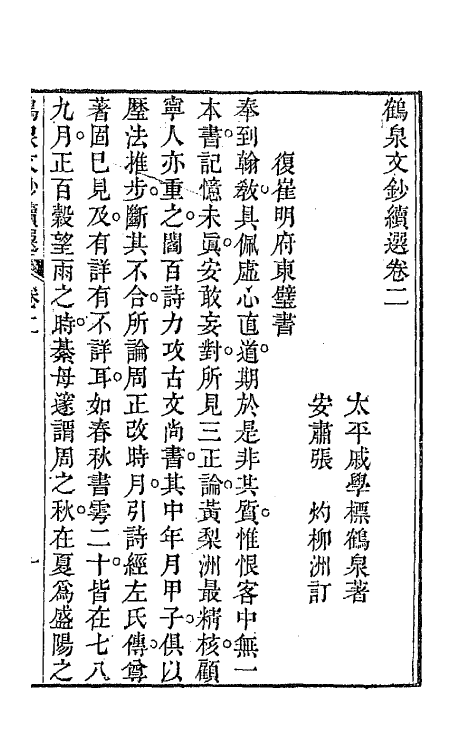 鶴泉文鈔續選卷二
太平戚學標鶴泉著
安肅張　灼柳洲訂
復崔明府東壁書
奉到翰教。具佩虛心直道。期於是非其質。惟恨客中無一
本書。記憶未眞。安敢妄對。所見三正論。黃梨洲最精核。顧
寧人亦重之。閻百詩力攻古文尚書。其中年月甲子。俱以
歴法推步。斷其不合。所論周正改時月。引詩經左氏傳。尊
著固已見及。有詳有不詳耳。如春秋書雩二十。皆在七八
九月。正百穀望雨之時。綦母邃謂周之秋。在夏爲盛陽之
鶴泉文鈔續選　卷二　一